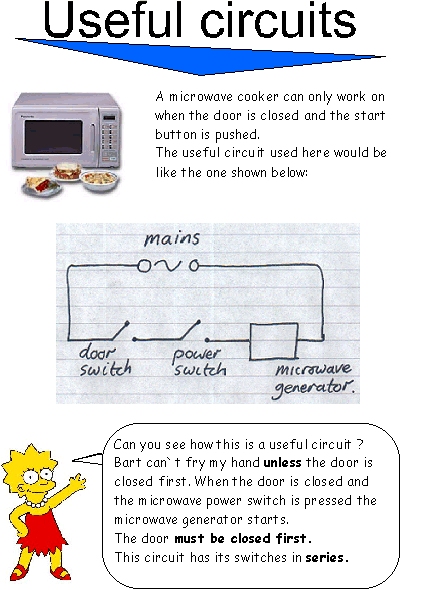 Useful circuits
A microwave cooker can only work on
when the door is closed and the start
button is pushed.
The useful circuit used here would be
like the one shown below:
mains
door
switch
power
switch
microwave
generator.
Can you see how this is a useful circuit ?
Bart can`t fry my hand unless the door is
closed first. When the door is closed and
the microwave power switch is pressed the
microwave generator starts.
The door must be closed first.
This circuit has its switches in series.